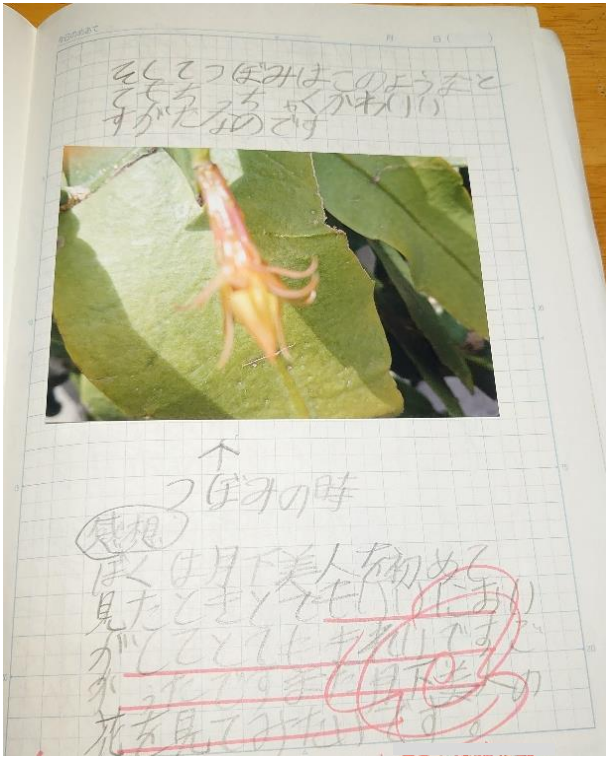 月 日( )
そしてつぼみはこのようなと
てもち ち ゃくかわいい
すがたなのです
↑
つぼみの時
感想
ぼくは月下美人を初めて
見たときとてもいいにおい
がしてとてもきれいです
かったですまた月下美人の
花を見てみたいです